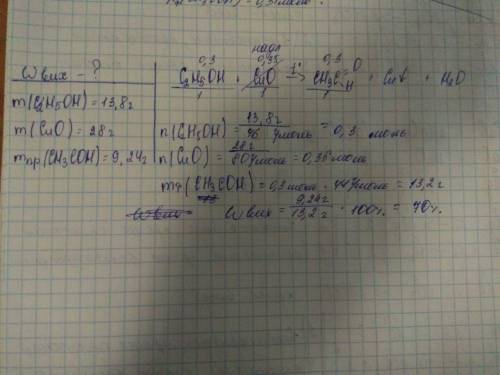 W вих - ?
m(C2H5OH) = 13,8г
m(CuO) = 28г
mпр(CH3COH) = 9,24г
0,3 0,35 0,3
C2H5OH + CuO t° → CH3C O H + Cu↓ + H2O
1 1 1
n(C2H5OH) = 13,8г / 46 г/моль = 0,3 моль
n(CuO) = 28г / 80 г/моль = 0,35 моль
mт(CH3COH) = 0,3 моль · 44 г/моль = 13,2г
W вих = 9,24г / 13,2г · 100% = 70%